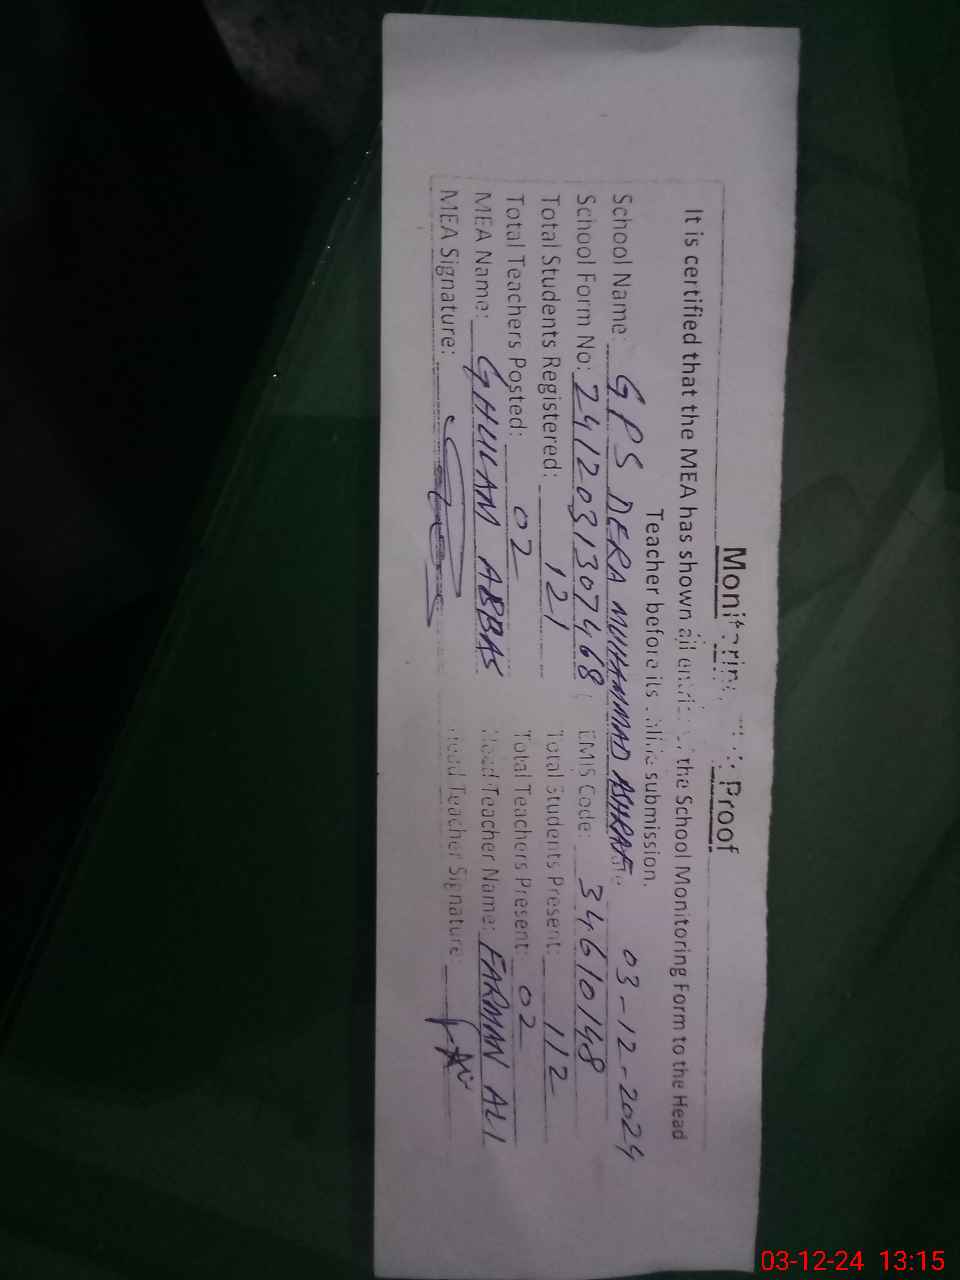 Monitoring Proof
It is certified that the MEA has shown all entries of the School Monitoring Form to the Head
Teacher before its submission.
School Name: GPS DERA MUHAMMAD ASHRAF 03-12-2024
School Form No: 2412031307468 EMIS Code: 34610148
Total Students Registered: 121 Total Students Present: 112
Total Teachers Posted: 02 Total Teachers Present: 02
MEA Name: GHULAM ABBAS Head Teacher Name: FARMAN ALI
MEA Signature: Head Teacher Signature:
03-12-24 13:15